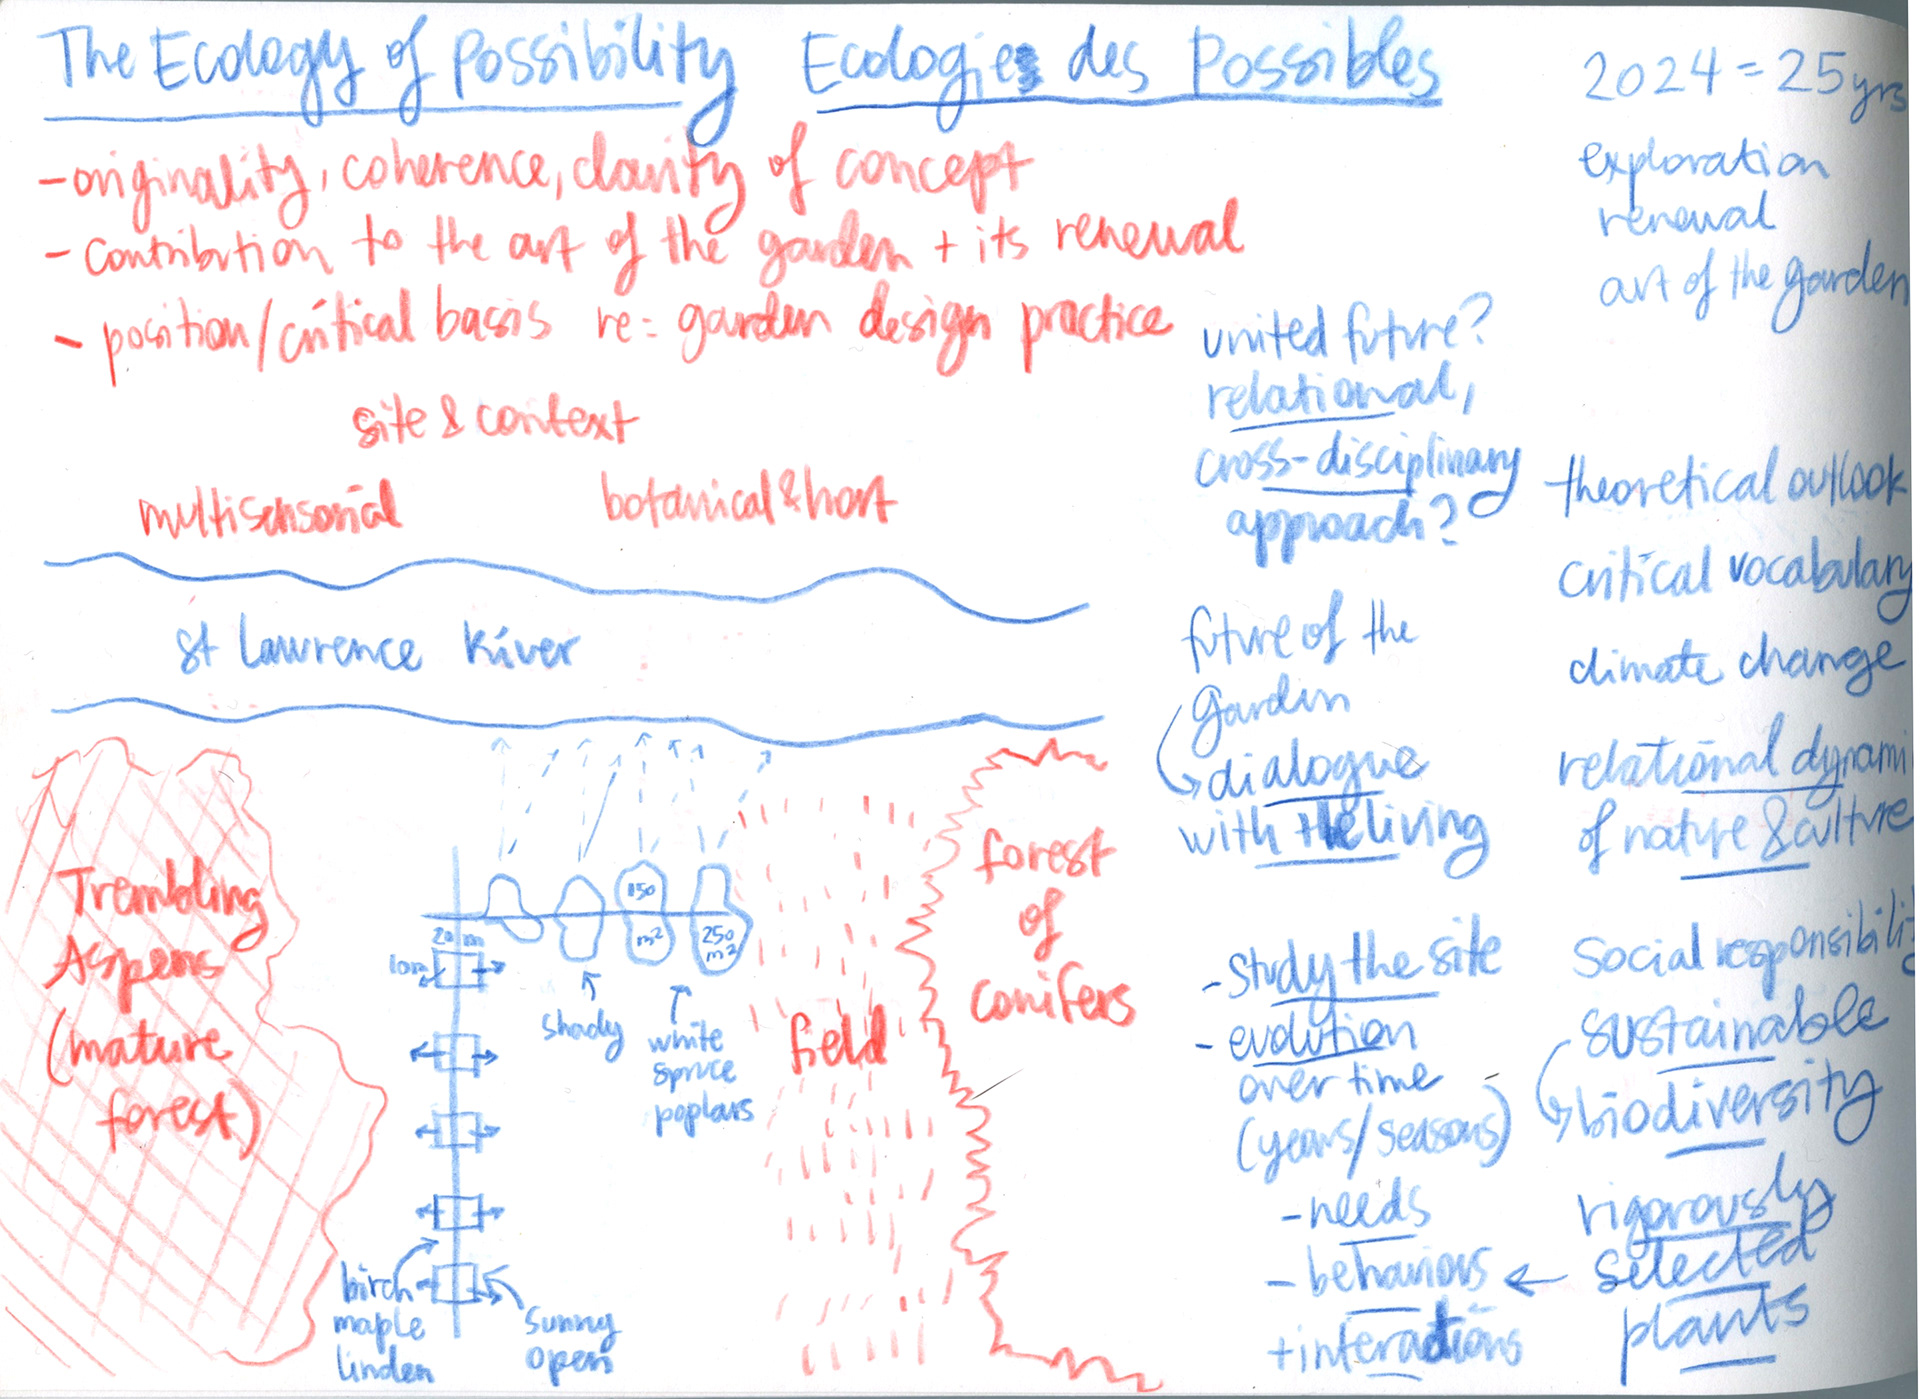 The Ecology of Possibility Ecologies des Possibles
- originality, coherence, clarity of concept
- contribution to the art of the garden + its renewal
- position/critical basis re: garden design practice
site & context
multisensorial
botanical & hort
St Lawrence River
Trembling
Aspens
(mature
forest)
20 m
10m
150
m²
250
m²
shady
white
spruce
poplars
birch
maple
linden
sunny
open
field
forest
of
conifers
united future?
relational,
cross-disciplinary
approach?
future of the
garden
dialogue
with the living
- study the site
- evolution
over time
(years/seasons)
- needs
- behaviors
+ interactions
2024 = 25yrs
exploration
renewal
art of the garden
theoretical outlook
critical vocabulary
climate change
relational dynami
of nature & culture
social responsibili
sustainable
biodiversity
rigorously
selected
plants